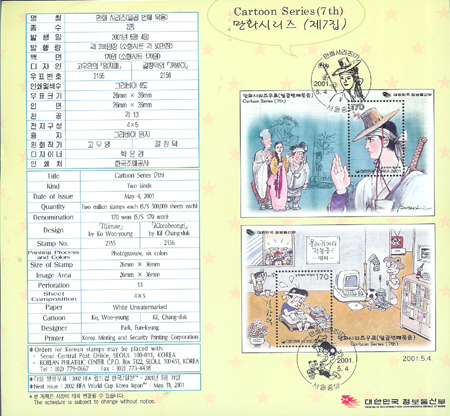 Cartoon Series (7th)
만화시리즈 (제7집)
명 칭 만화 시리즈(일곱 번째 묶음)
종 수 2종
발 행 일 2001년 5월 4일
발 행 량 각 200만장 (소형시트 각 50만장)
액 면 170원 (소형시트 170원)
디 자 인 고우영의 「일지매」 길창덕의 「꺼벙이」
우표번호 2155 2156
인쇄및색수 그라비어 6도
우표크기 26mm × 36mm
인 면 26mm × 36mm
천 공 각 13
전지구성 4×5
용 지 그라비어 원지
원화작가 고 우 영 길 창 덕
디자이너 박 은 경
인 쇄 처 한국조폐공사
Title Cartoon Series (7th)
Kind Two kinds
Date of Issue May 4, 2001
Quantity Two million stamps each (S/S 500,000 sheets each)
Denomination 170 won (S/S 170 won)
Design 『Iljimae』 by Ko Woo-young 『Kkeobeongi』 by Kil Chang-duk
Stamp No. 2155 2156
Printing Process and Colors Photogravure, six colors
Size of Stamp 26mm × 36mm
Image Area 26mm × 36mm
Perforation 13
Sheet Composition 4×5
Paper White Unwatermarked
Cartoon Ko, Woo-young Kil, Chang-duk
Designer Park, Eun-kyung
Printer Korea Minting and Security Printing Corporation
Orders for Korean stamps may be placed with:
- Seoul Central Post Office, SEOUL 100-011, KOREA
- KOREAN PHILATELIC CENTER C.P.O. Box 5122, SEOUL 100-651, KOREA
2001.
5. 4
서울중앙
대한민국 정보통신부
만화시리즈우표(일곱번째묶음)
Cartoon Series (7th)
170
대한민국 정보통신부
170
만화시리즈우표(일곱번째묶음)
Cartoon Series (7th)
2001.
5. 4
서울중앙
2001. 5.4.
The schedule is subject to change without notice.
대한민국 정보통신부